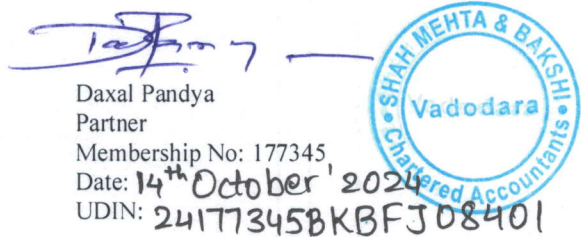 Daxal Pandya
Partner
Membership No: 177345
Date: 14th October' 2024
UDIN: 24177345BKBFJO8401
SHAH MEHTA & BAKSHI
Vadodara
Chartered Accountants